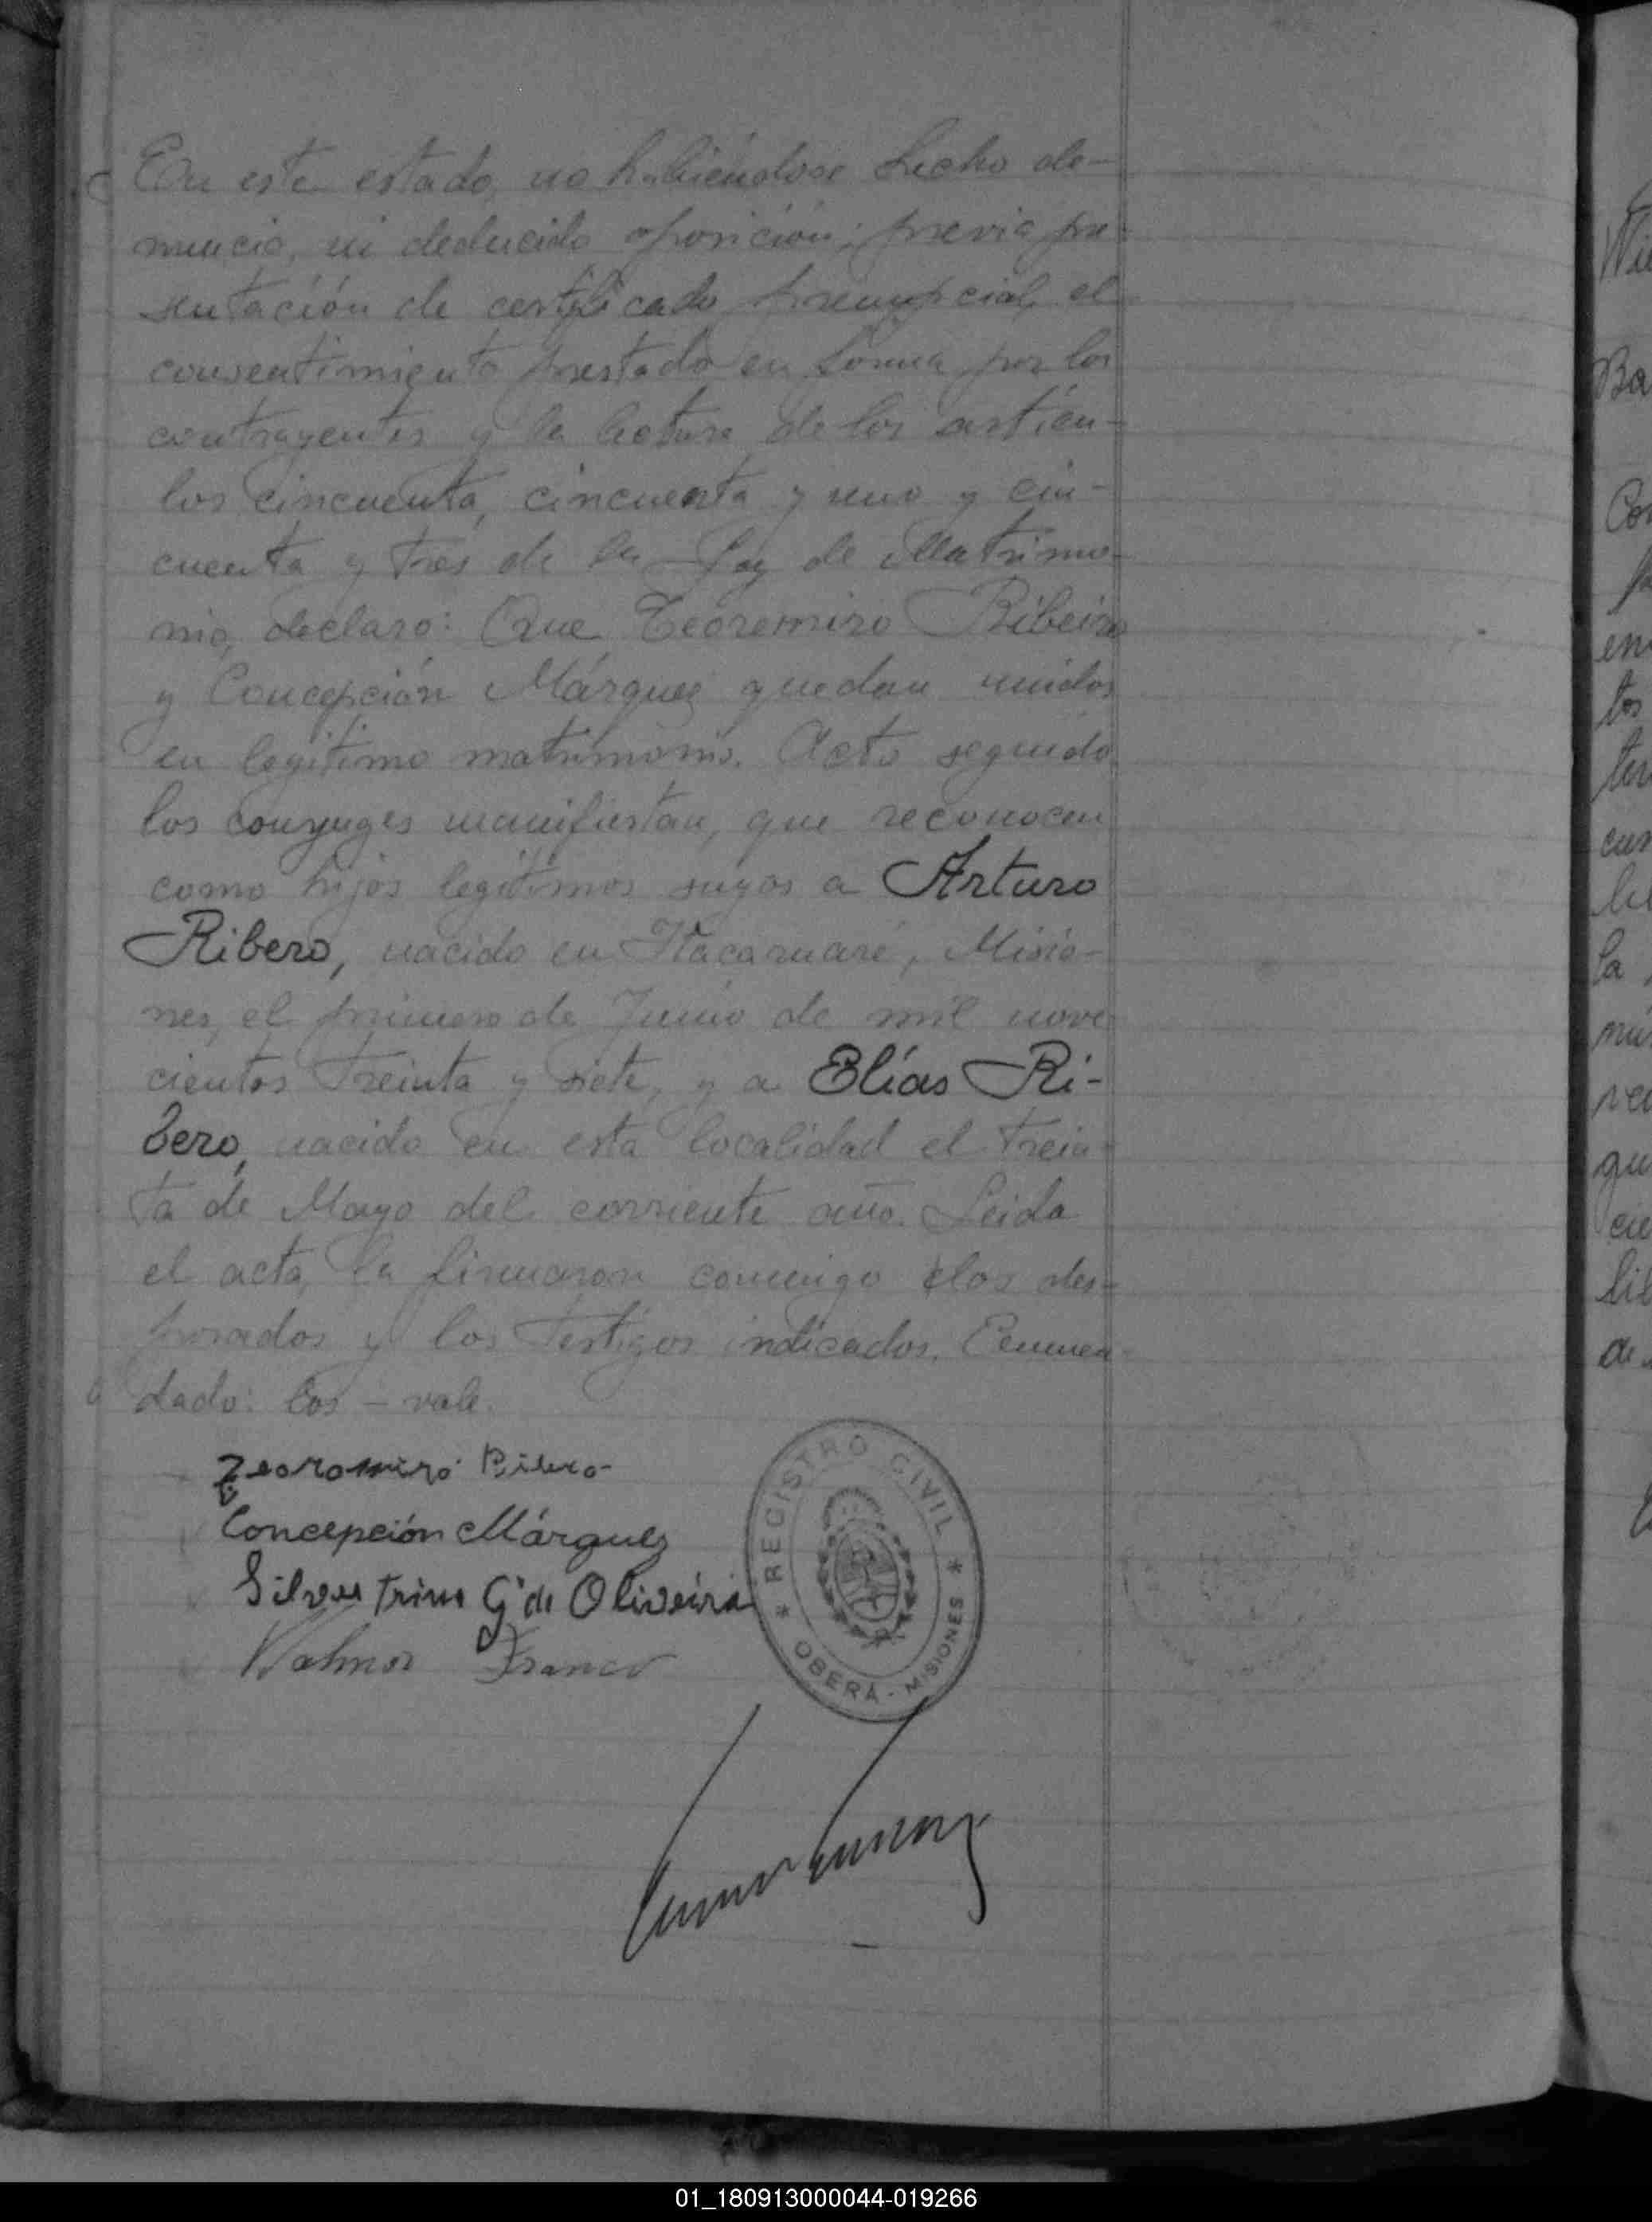 En este estado, no habiéndose hecho de-
nuncia, ni deducido oposición; previa pre-
sentación de certificado prenupcial, el
consentimiento prestado en forma por los
contrayentes y la lectura de los artícu-
los cincuenta, cincuenta y uno y cin-
cuenta y tres de la Ley de Matrimo-
nio, declaro: Que Teoremiro Ribeiro
y Concepción Márquez quedan unidos
en legítimo matrimonio. Acto seguido
los conyuges manifiestan, que reconocen
como hijos legítimos suyos a Arturo
Ribero, nacido en Itacaruaré, Misio-
nes, el primero de Junio de mil nove
cientos treinta y siete, y a Elías Ri-
bero, nacido en esta localidad el trein-
ta de Mayo del corriente año. Leida
el acta, la firmaron conmigo los des-
posados y los testigos indicados. Enmen-
dado: los - vale.
Teoromiro Ribero
Concepción Márquez
G. de Oliveira
Franco
* REGISTRO CIVIL *
OBERÁ - MISIONES
Ba
en
tos
la
de
01_180913000044-019266